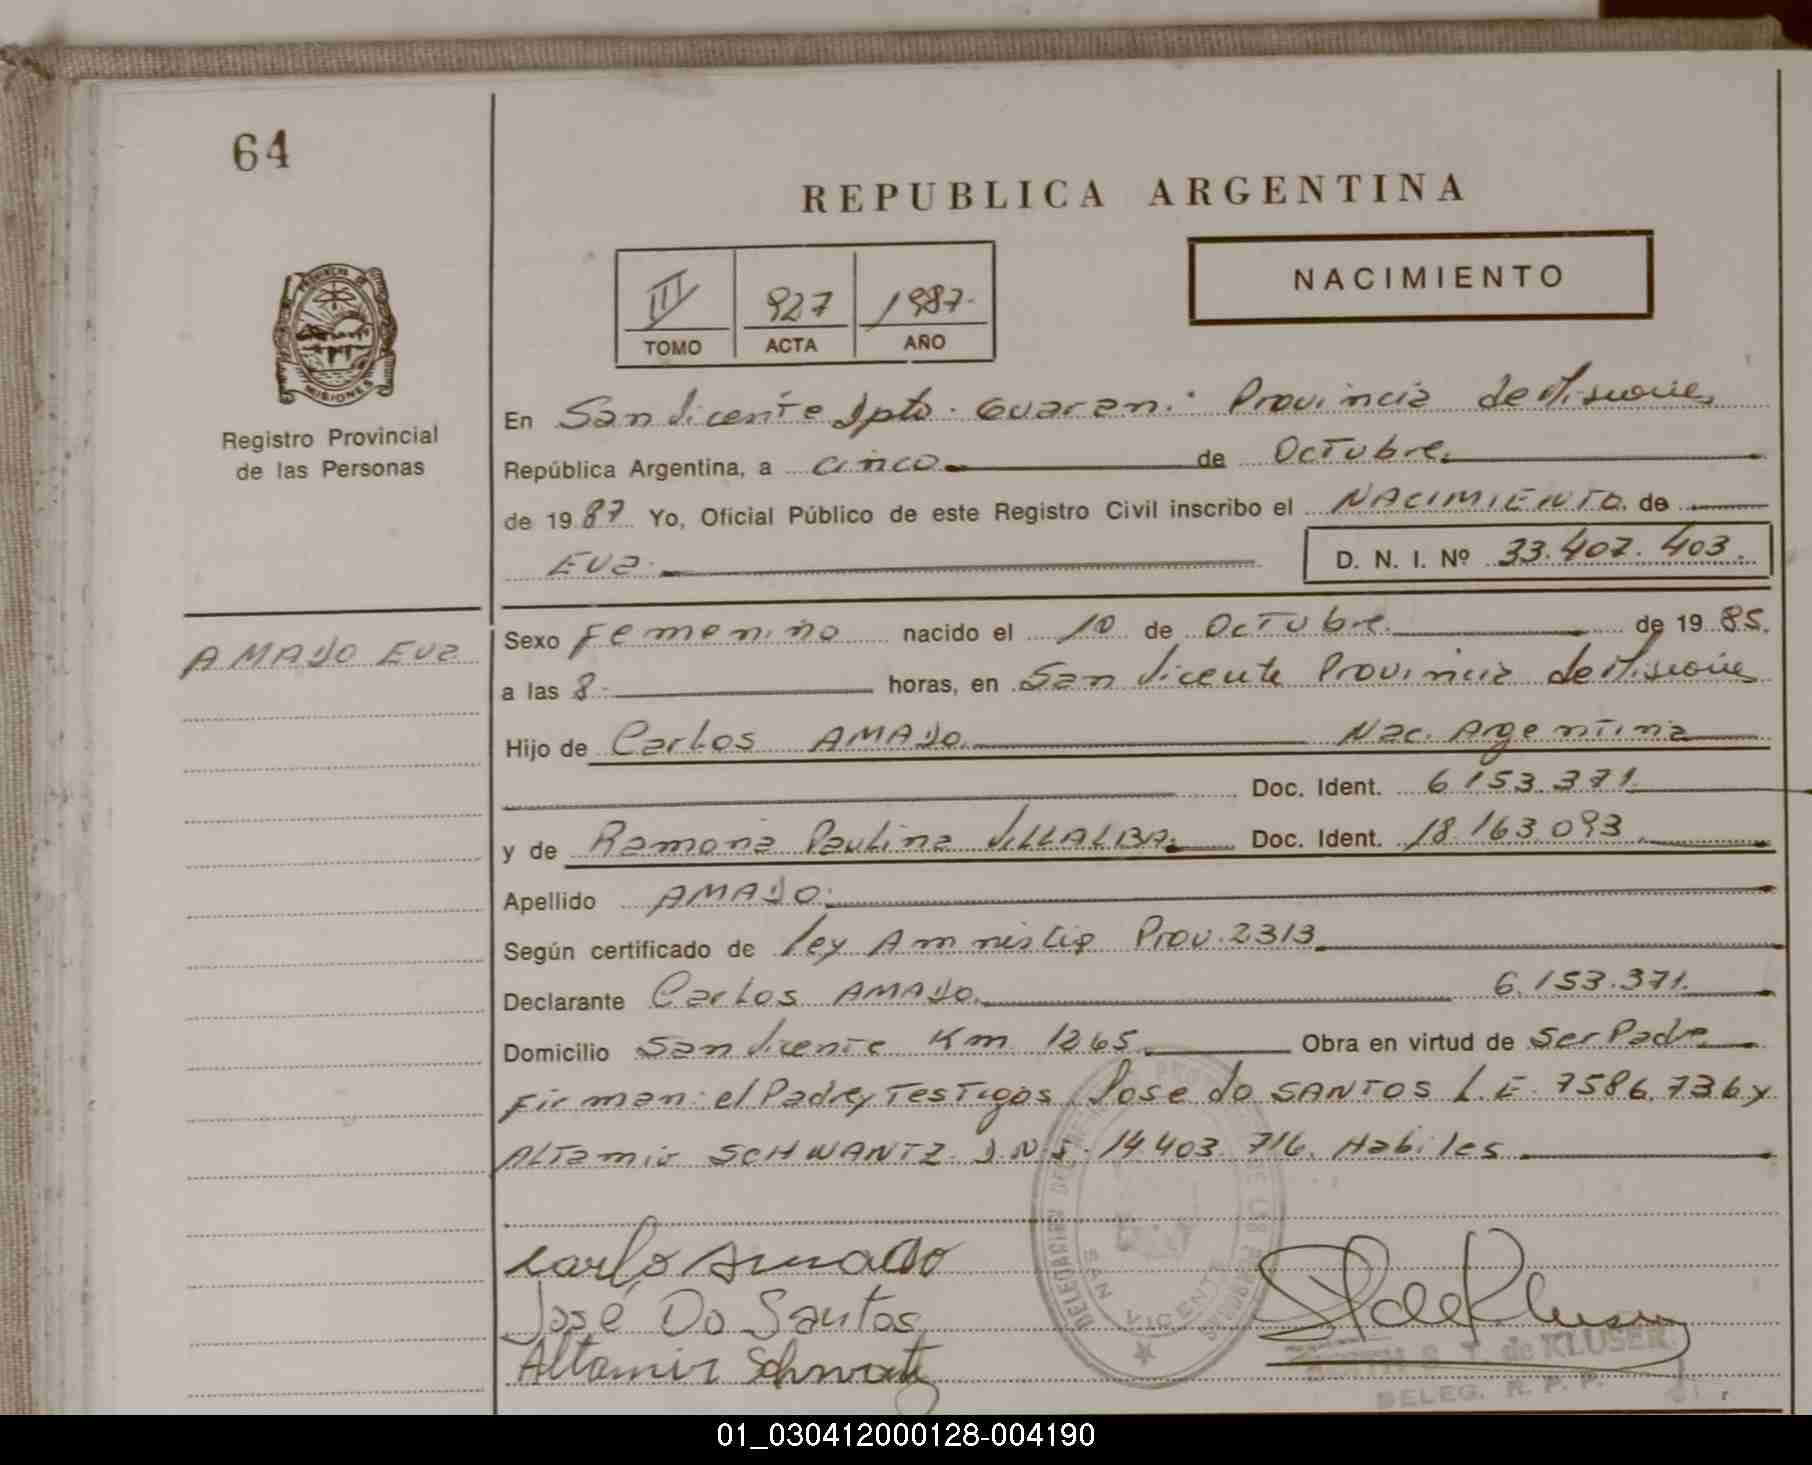 64
REPUBLICA ARGENTINA
NACIMIENTO
III 927 1987.
TOMO ACTA AÑO
PROVINCIA DE
MISIONES
Registro Provincial
de las Personas
En San Vicente Dpto. Guaraní Provincia de Misiones
República Argentina, a cinco de Octubre
de 1987 Yo, Oficial Público de este Registro Civil inscribo el NACIMIENTO de
Eva. D. N. I. Nº 33.407.403.
AMADO Eva
Sexo Femenino nacido el 10 de Octubre de 1985.
a las 8 horas, en San Vicente Provincia de Misiones
Hijo de Carlos AMADO Nac. Argentina
Doc. Ident. 6153.371.
y de Ramona Paulina VILLALBA. Doc. Ident. 18.163.093
Apellido AMADO.
Según certificado de ley Amnistia Prov. 2313
Declarante Carlos AMADO 6.153.371.
Domicilio San Vicente Km 1265 Obra en virtud de Ser Padre
Firman: el Padre y Testigos José do SANTOS L.E. 7586.736 y
ALTamir SCHWANTZ D.N.I. 14.403.716. Habiles
Carlo Amado
José Do Santos
Altamir Schwantz
SAN VICENTE
S. T. de KLUSER
DELEG. R. P. P.
01_030412000128-004190